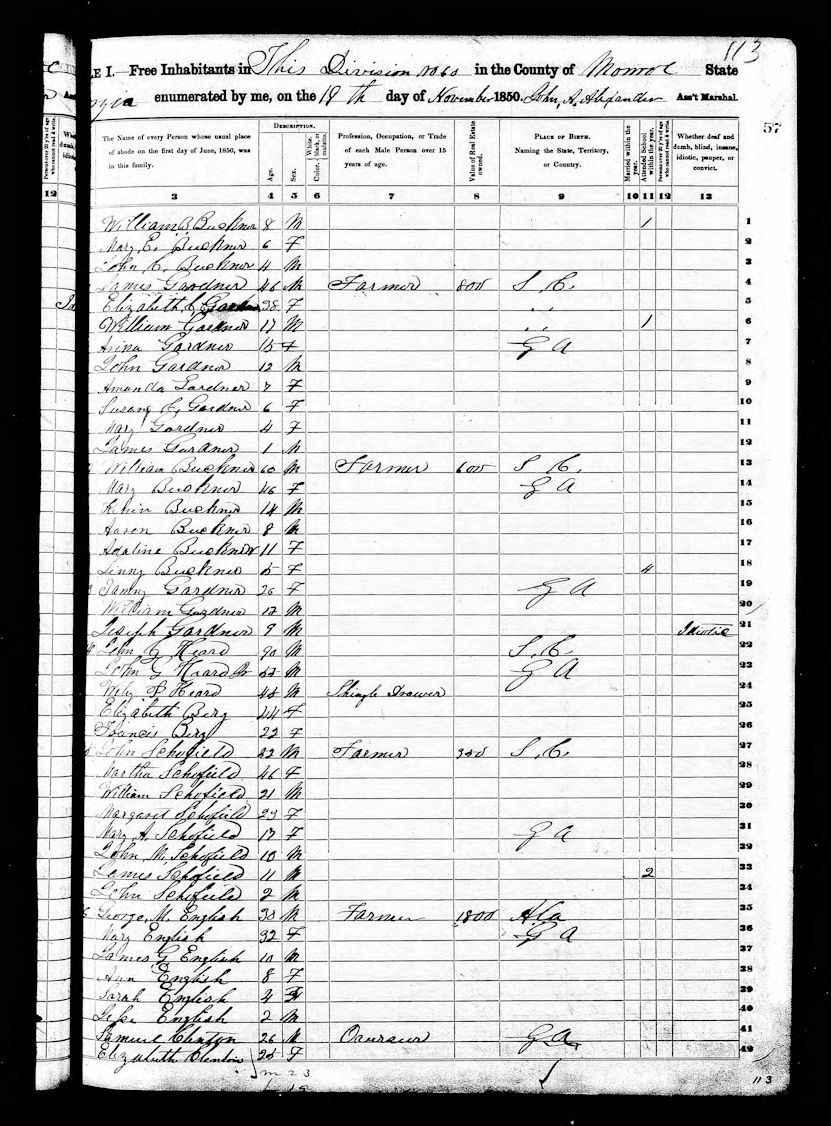 113
LE I. Free Inhabitants in This Division No 60 in the County of Monroe State
enumerated by me, on the 19th day of November 1850. John, A. Alexander Ass't Marshal.
57
The Name of every Person whose usual place of abode on the first day of June, 1850, was in this family.
DESCRIPTION.
Age.
Sex.
Color, White, black, or mulatto.
Profession, Occupation, or Trade of each Male Person over 15 years of age.
Value of Real Estate owned.
PLACE OF BIRTH. Naming the State, Territory, or Country.
Married within the year.
Attended School within the year.
Persons over 20 y'rs of age who cannot read & write.
Whether deaf and dumb, blind, insane, idiotic, pauper, or convict.
12 3 4 5 6 7 8 9 10 11 12 13
William B. Buckner 8 M 1 1
Mary E. Buckner 6 F 2
John C. Buckner 4 M 3
James Gardner 46 M Farmer 800 S C. 4
Elizabeth 38 F " 5
William Gardner 17 M " 1 6
Gardner 15 F G A 7
John Gardner 12 M 8
Amanda Gardner 7 F 9
Susang C, Gardner 6 F 10
Mary Gardner 4 F 11
James Gardner 1 M 12
William Buckner 60 M Farmer 600 S C. 13
Mary Buckner 46 F G A 14
Buckner 14 M 15
Aaron Buckner 8 M 16
Adaline Buckner 11 F 17
Buckner 5 F 18
Gardner 26 F G A 19
William Gardner 12 M 20
Joseph Gardner 9 M Idiotic 21
John G Heard 90 M S. C. 22
John G Heard Jr M G A 23
Wily Heard 48 M Shingle Drawer 24
Elizabeth Berg 44 F 25
Francis Berg 22 F 26
John Schofield M Farmer 350 S. C. 27
Martha Schofield 46 F 28
William Schofield 21 M 29
Margaret Schofield F 30
Mary A. Schofield 17 F G A 31
John M, Schofield 10 M 32
James Schofield 11 M 2 33
John Schofield 2 M 34
George, M. English 30 M Farmer 1800 Ala 35
Mary English 32 F G A 36
James G English 10 M 37
Ann English 8 F 38
Sarah English 4 F 39
English 2 M 40
Samuel Clenton 26 M G A 41
Elizabeth Clenton F 42
m 23
113